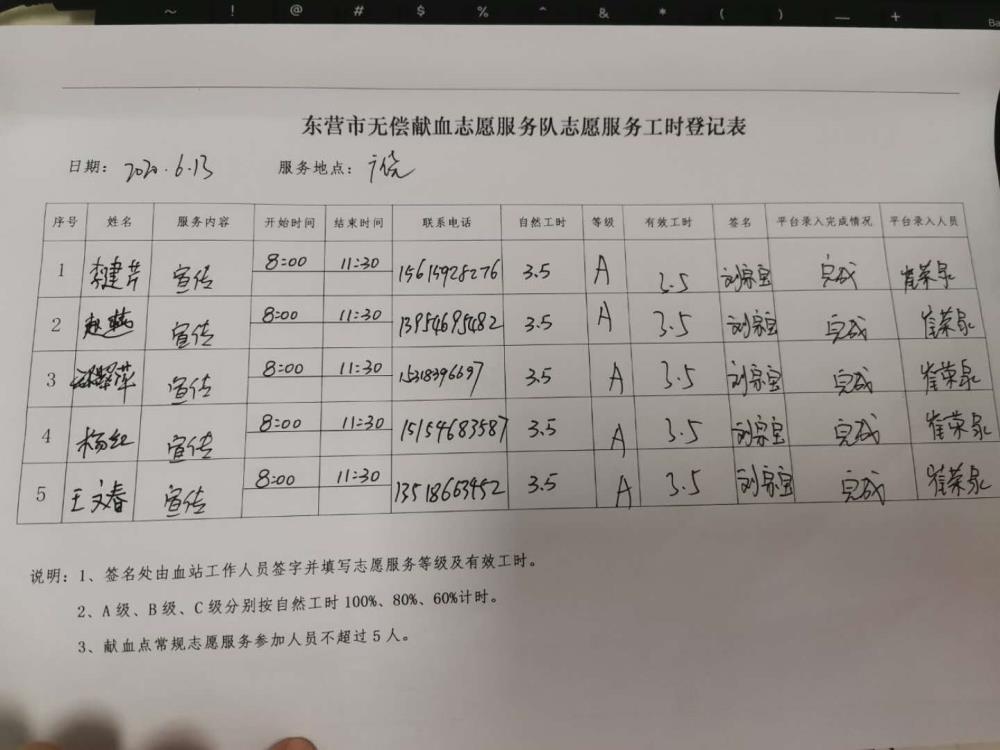 ~ ! @ # $ % ^ & * ( ) — + Ba
东营市无偿献血志愿服务队志愿服务工时登记表
日期: 2020.6.13 服务地点: 广饶
序号 姓名 服务内容 开始时间 结束时间 联系电话 自然工时 等级 有效工时 签名 平台录入完成情况 平台录入人员
1 李建芹 宣传 8:00 11:30 15615928276 3.5 A 3.5 刘宗宝 完成 崔荣泉
2 赵燕 宣传 8:00 11:30 13954695482 3.5 A 3.5 刘宗宝 完成 崔荣泉
3 宣传 8:00 11:30 15318396697 3.5 A 3.5 刘宗宝 完成 崔荣泉
4 杨红 宣传 8:00 11:30 15154683587 3.5 A 3.5 刘宗宝 完成 崔荣泉
5 王文春 宣传 8:00 11:30 13518653452 3.5 A 3.5 刘宗宝 完成 崔荣泉
说明: 1、签名处由血站工作人员签字并填写志愿服务等级及有效工时。
2、A 级、B 级、C 级分别按自然工时 100%、80%、60%计时。
3、献血点常规志愿服务参加人员不超过 5 人。